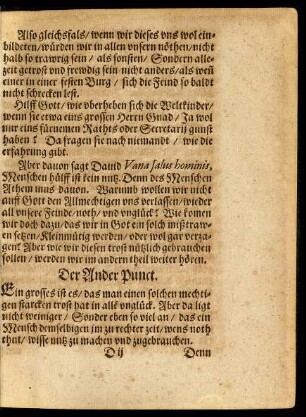 Also gleichsfals/ wenn wir dieses vns wol ein-
bildeten/ würden wir in allen vnsern nöthen/ nicht
halb so trawrig sein/ als sonsten/ Sondern alle-
zeit getrost vnd frewdig sein nicht anders/ als weñ
einer in einer festen Burg/ sich die Feind so baldt
nicht schrecken lest.
Hilff Gott/ wie vberheben sich die Weltkinder/
wenn sie etwa eins grossen Herrn Gnad/ Ja wol
nur eins fürnemen Raths oder Secretarij gunst
haben? Da fragen sie nach niemandt/ wie die
erfahrung gibt.
Aber dauon sagt Dauid Vana salus hominis,
Menschen hülff ist kein nutz. Denn des Menschen
Athem mus dauon. Warumb wollen wir nicht
auff Gott den Allmechtigen vns verlassen/ wieder
all vnsere Feinde/ noth/ vnd vnglück? Wie komen
wir doch dazu/ das wir in Gott ein solch mißtraw-
en setzen/ Kleinmütig werden/ oder wol gar verza-
gen? Aber wie wir diesen trost nützlich gebrauchen
sollen/ werden wir im andern theil weiter hören.
Der Ander Punct.
Ein grosses ist es/ das man einen solchen mechti-
gen starcken trost hat in allē vnglück. Aber da ligt
nicht weniger/ Sonder eben so viel an/ das ein
Mensch demselbigen jm zu rechter zeit/ wens noth
thut/ wisse nutz zu machen vnd zugebrauchen.
D ij Denn